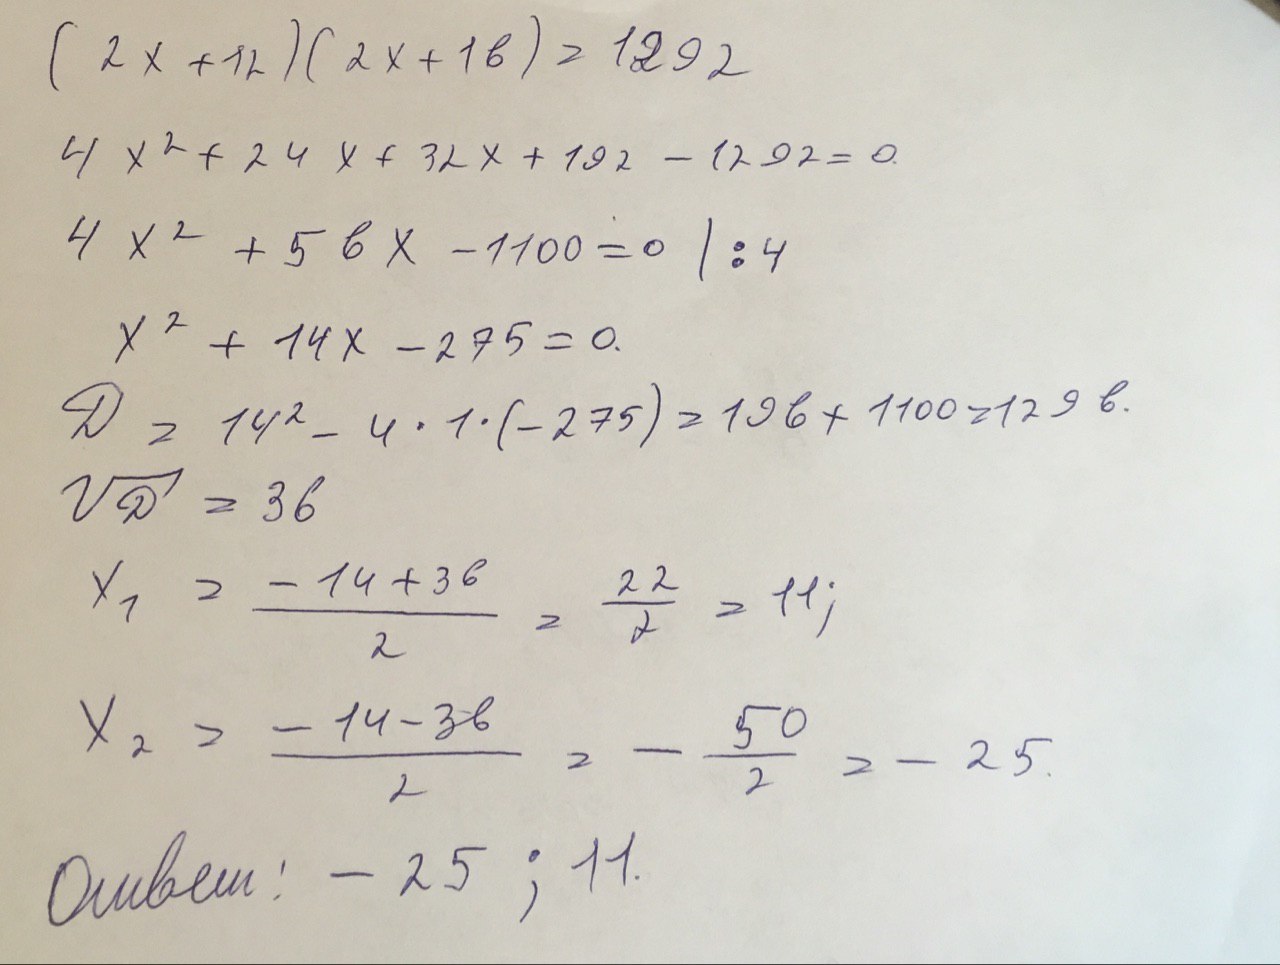 (2x+12)(2x+16)=1292
4x²+24x+32x+192-1292=0.
4x²+56x-1100=0 |:4
x²+14x-275=0.
D=14²-4·1·(-275)=196+1100=1296.
√D=36
x₁ = (-14+36)/2 = 22/2 = 11;
x₂ = (-14-36)/2 = -50/2 = -25.
Ответ: -25; 11.